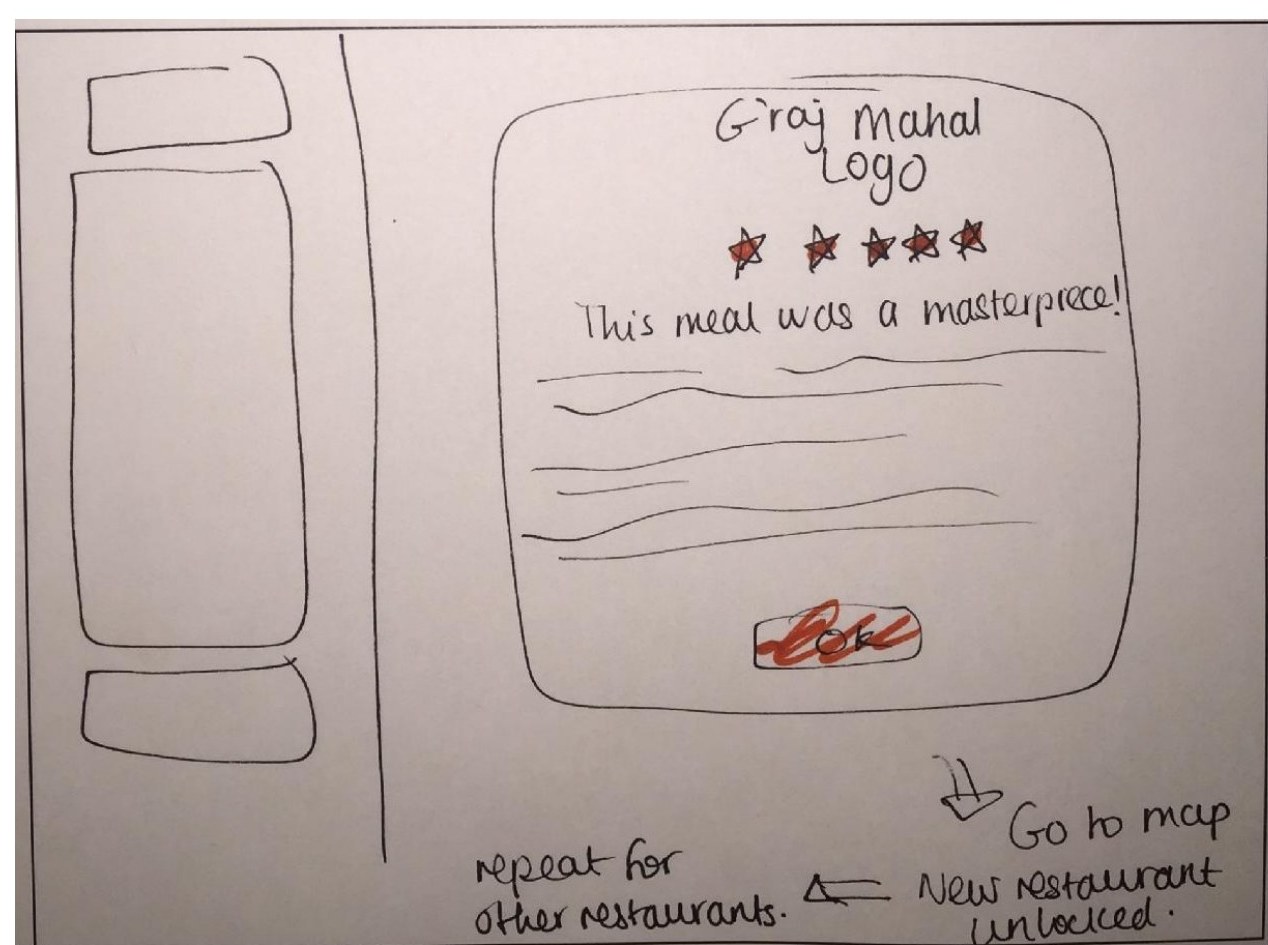 G'raj Mahal
Logo
This meal was a masterpiece!
Ok
Go to map
New restaurant
unlocked.
repeat for
other restaurants.